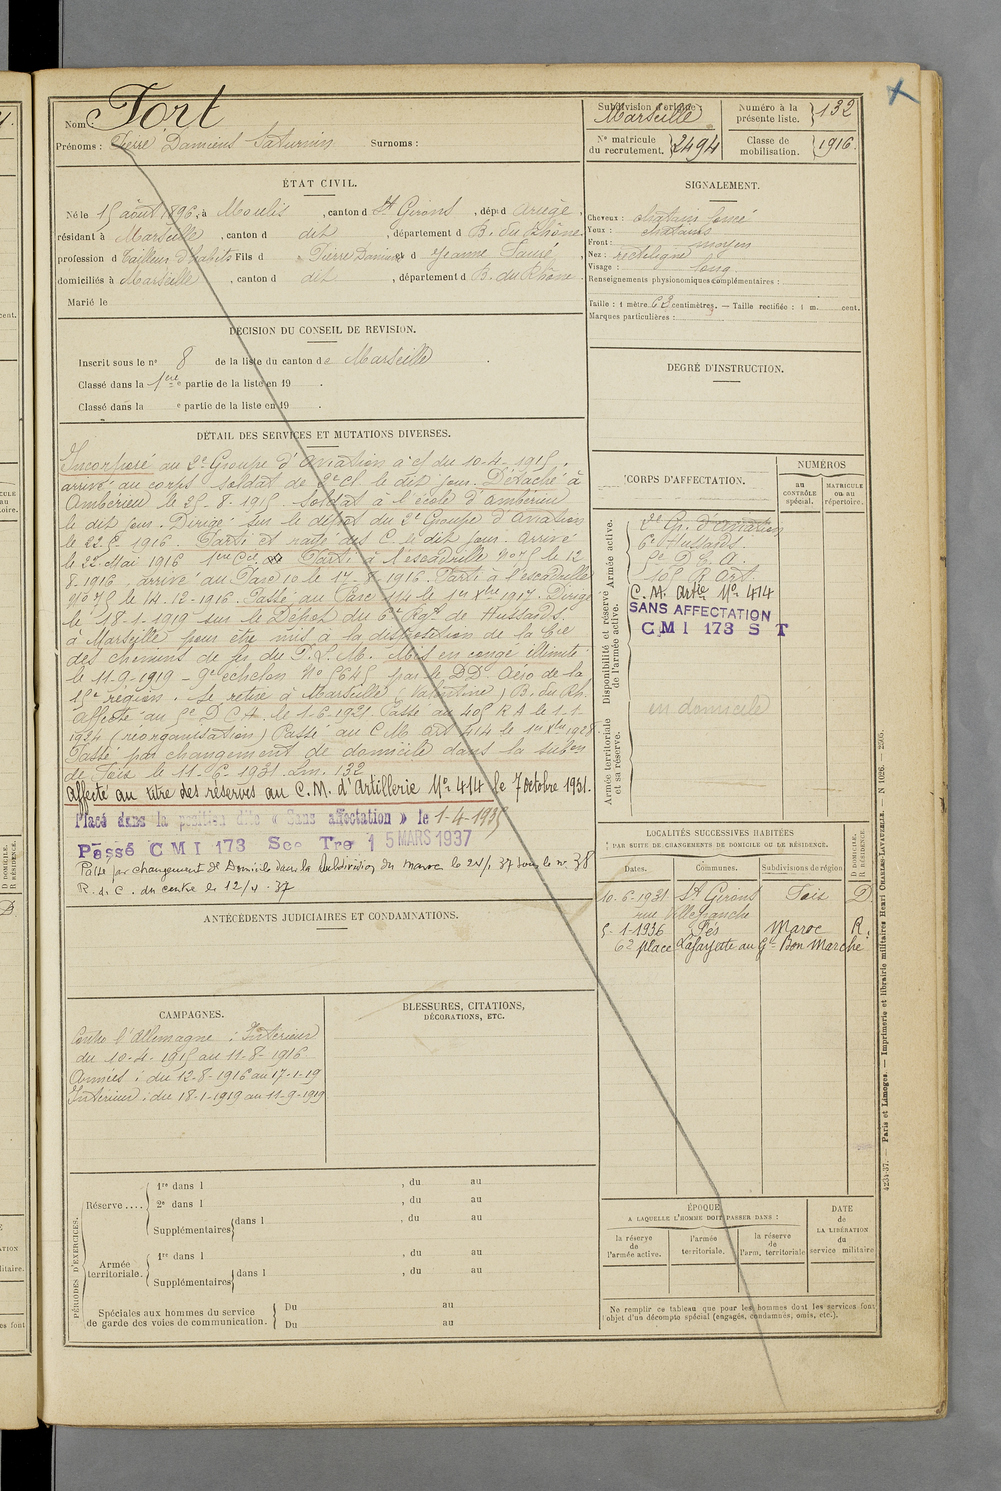 Nom : Fort
Prénoms : Pierre Damiens Saturnin Surnoms :
Subdivision d'origine : Marseille
Numéro à la présente liste. 132
N° matricule du recrutement. 2494
Classe de mobilisation. 1916
ÉTAT CIVIL.
Né le 15 août 1896, à Moulis, canton d St Girons, dép. d Ariège,
résidant à Marseille, canton d dit, département d B. du Rhône
profession d tailleur d'habits Fils d Pierre Damiens et d Jeanne Sauré,
domiciliés à Marseille, canton d dit, département d B. du Rhône
Marié le
SIGNALEMENT.
Cheveux : chatain foncé
Yeux : chatains
Front : moyen
Nez : rectiligne
Visage : long
Renseignements physionomiques complémentaires :
Taille : 1 mètre 62 centimètres. — Taille rectifiée : 1 m. cent.
Marques particulières :
DÉCISION DU CONSEIL DE REVISION.
Inscrit sous le n° 8 de la liste du canton de Marseille.
Classé dans la 1ere partie de la liste en 19 .
Classé dans la e partie de la liste en 19 .
DEGRÉ D'INSTRUCTION.
DÉTAIL DES SERVICES ET MUTATIONS DIVERSES.
Incorporé au 2e Groupe d'Aviation à c/ du 10-4-1915.
arrivé au corps soldat de 2e cl. le dit jour. Détaché à
Ambérieu le 25-8-1915 soldat à l'école d'ambérieu
le dit jour. Dirigé sur le dépôt du 2e Groupe d'Aviation
le 22 5 1916. Parti et rayé des C. le dit jour. Arrivé
le 22 Mai 1916 1ere Cie. Parti à l'escadrille No 75 le 12-
8-1916 arrivé au Parc 10 le 17-8-1916. Parti à l'escadrille
No 75 le 14-12-1916. Passé au Parc 114 le 1er Xbre 1917. Dirigé
le 18-1-1919 sur le Dépôt du 6e Rgt de Hussards.
à Marseille pour être mis à la disposition de la Cie
des chemins de fer du P.L.M. Mis en congé illimité
le 11-9-1919 - 9e échelon No 5645 par le DD Aéro de la
15e région Se retire à Marseille (Valentine) B. du Rh.
Affecté au 5e D C A. le 1-6-1921. Passé au 405 R A le 1-1-
1924 (réorganisation) Passé au C M Art 414 le 1er Xbre 1928.
Passé par changement de domicile dans la subon
de Foix le 11-6-1931. Lm. 132
Affecté au titre des réserves au C.M. d'Artillerie No 414 le 7 octobre 1931.
Placé dans la position dite « Sans affectation » le 1-4-1935
Passé CMI 173 Sec Tre 15 MARS 1937
Passé par changement de Domicile dans la subdivision du Maroc le 24/1 37 sous le no 38
R. du C. du centre le 12/4.37
CORPS D'AFFECTATION.
NUMÉROS
au CONTRÔLE spécial.
MATRICULE ou au répertoire.
Armée active.
2e Gr. d'Aviation
6e Hussards.
5e D C A.
405 R Art.
Disponibilité et réserve de l'armée active.
C. M. Artie No 414
SANS AFFECTATION
CMI 173 S T
en domicile
Armée territoriale et sa réserve.
LOCALITÉS SUCCESSIVES HABITÉES
PAR SUITE DE CHANGEMENTS DE DOMICILE OU DE RÉSIDENCE.
Dates. Communes. Subdivisions de région D DOMICILE. R RÉSIDENCE.
10-6-1931 St Girons Foix D
rue Villefranche
5-1-1936 Fés Maroc R.
62 place Lafayette au Gd Bon Marché
ANTÉCÉDENTS JUDICIAIRES ET CONDAMNATIONS.
CAMPAGNES.
Contre l'Allemagne : Intérieur
du 10-4-1915 au 11-8-1916
Armées : du 12-8-1916 au 17-1-19
Intérieur : du 18-1-1919 au 11-9-1919
BLESSURES, CITATIONS,
DÉCORATIONS, ETC.
PÉRIODES D'EXERCICES.
Réserve ....
1re dans l , du au
2e dans l , du au
Supplémentaires dans l , du au
Armée territoriale.
1re dans l , du au
Supplémentaires dans l , du au
Spéciales aux hommes du service de garde des voies de communication.
Du au
Du au
ÉPOQUE
A LAQUELLE L'HOMME DOIT PASSER DANS :
la réserve de l'armée active.
l'armée territoriale.
la réserve de l'arm. territoriale
DATE de LA LIBÉRATION du service militaire
Ne remplir ce tableau que pour les hommes dont les services font
l'objet d'un décompte spécial (engagés, condamnés, omis, etc.).
4234-37. — Paris et Limoges. — Imprimerie et librairie militaires Henri CHARLES-LAVAUZELLE. — N 1026.